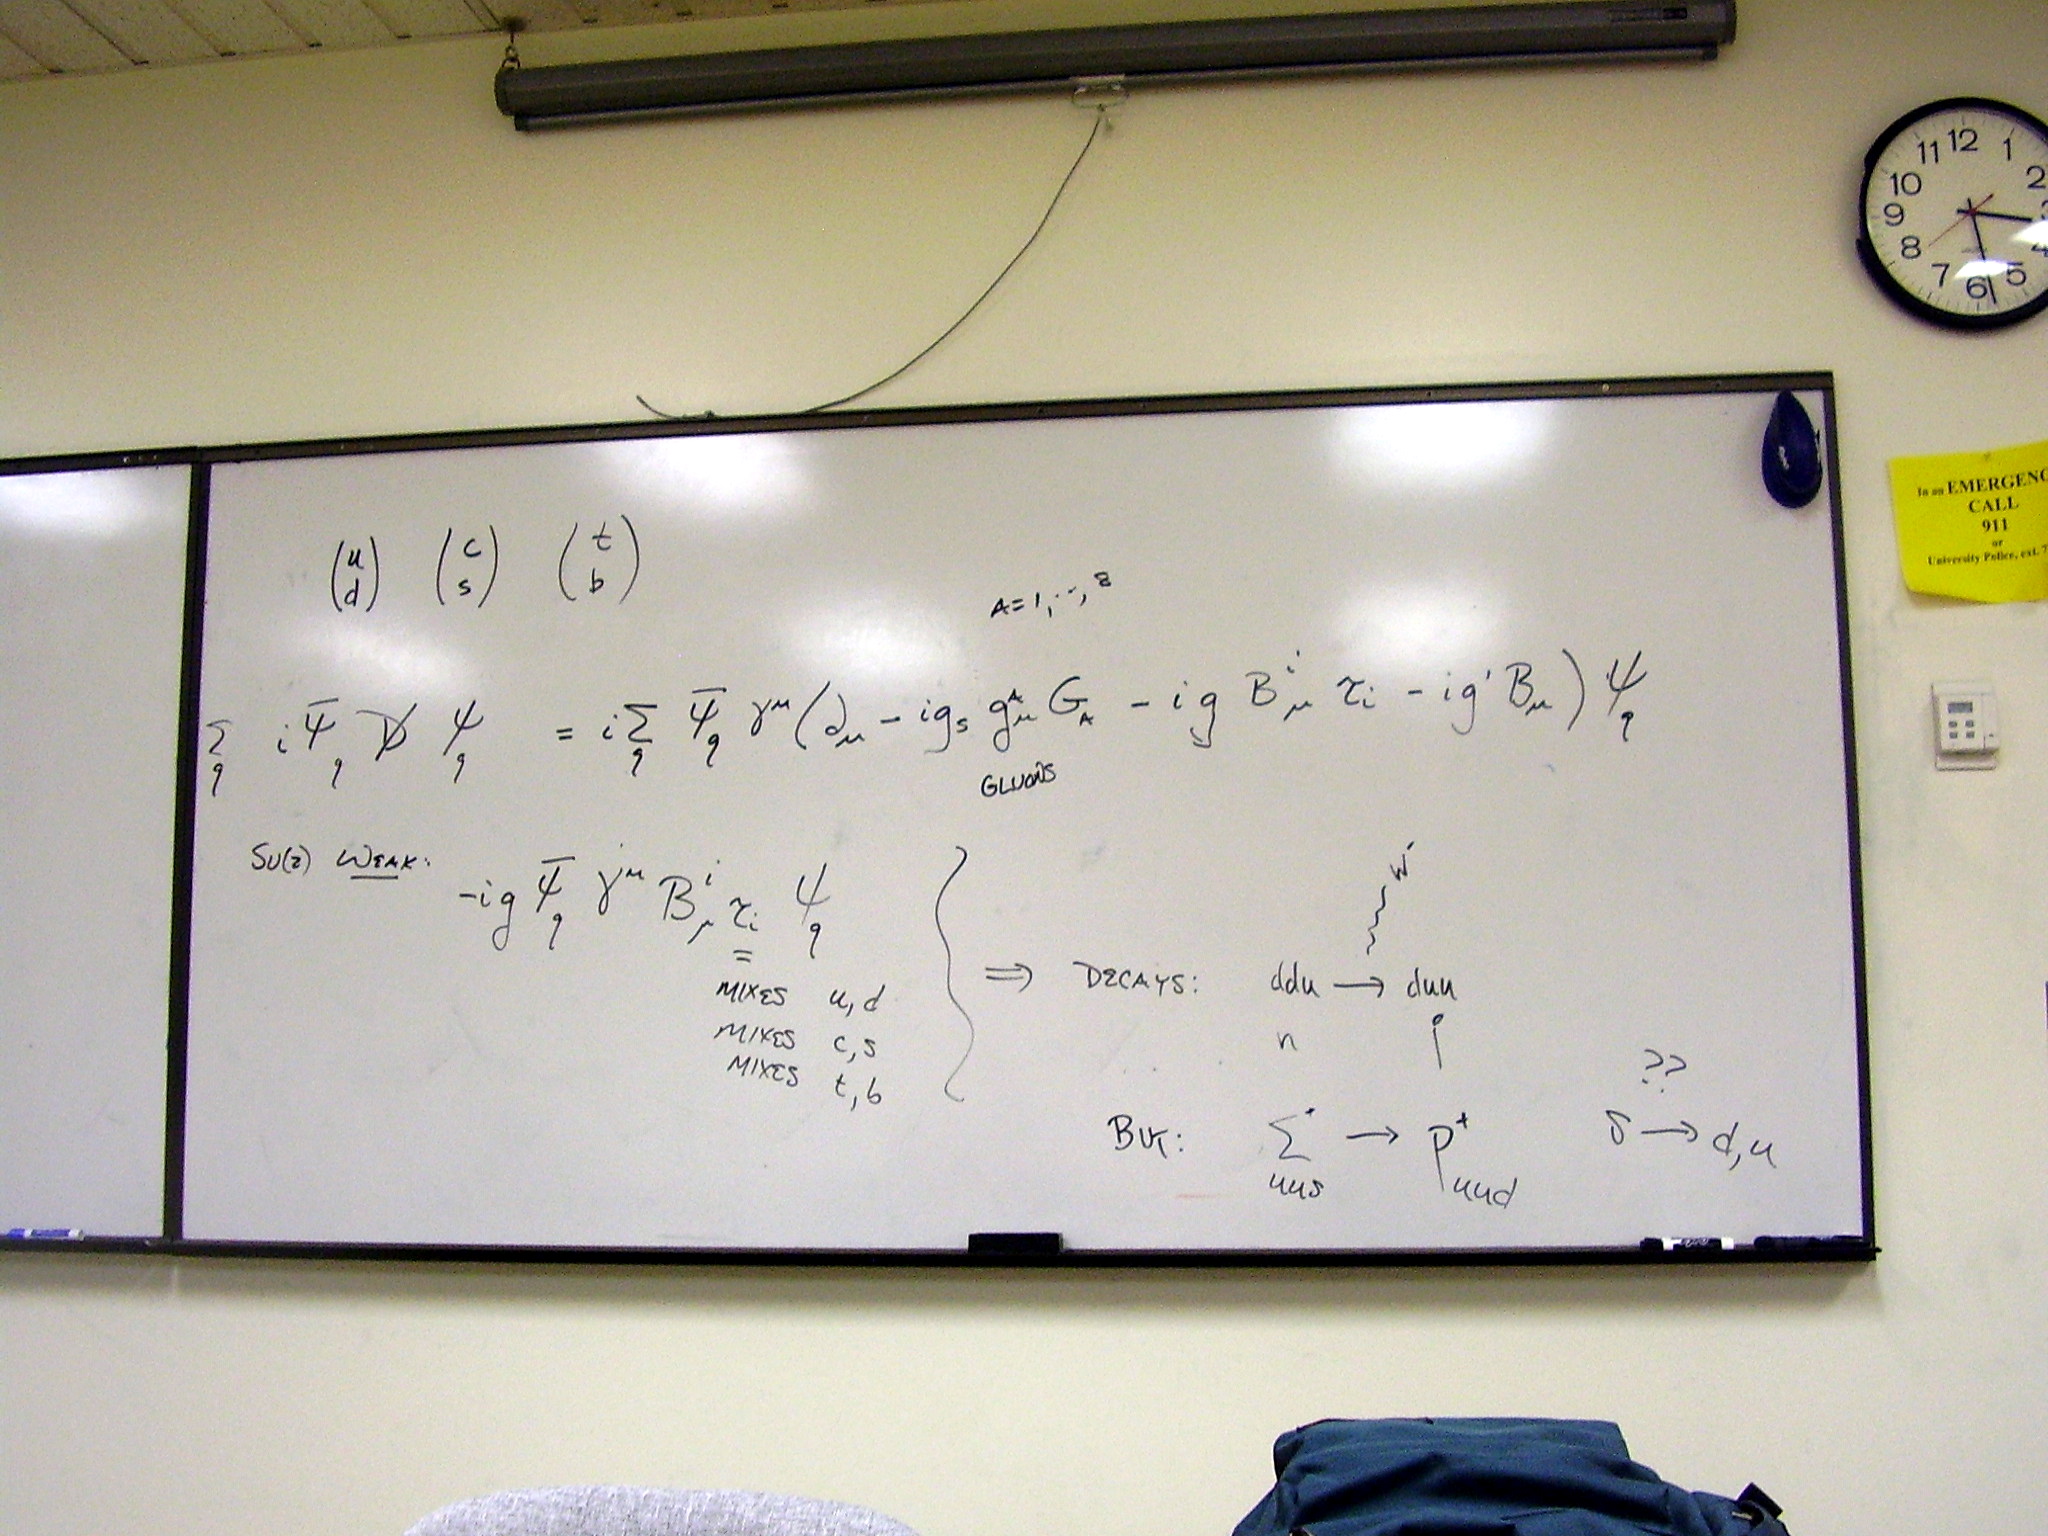 12
11 1
10 2
9
8 4
7 5
6
In an EMERGENC
CALL
911
or
University Police, ext. 7
(u d) (c s) (t b)
A=1,..., 8
Σ_q i Ψ̄_q D̸ Ψ_q = i Σ_q Ψ̄_q γ^μ (∂_μ - i g_s g^A_μ G_A - i g B^i_μ τ_i - i g' B_μ) Ψ_q
GLUONS
SU(2) WEAK: -ig Ψ̄_q γ^μ B^i_μ τ_i Ψ_q
MIXES u, d
MIXES c, s
MIXES t, b
W^-
⇒ DECAYS: ddu → duu
n p
??
BUT: Σ^+ → p^+ s → d, u
uus uud